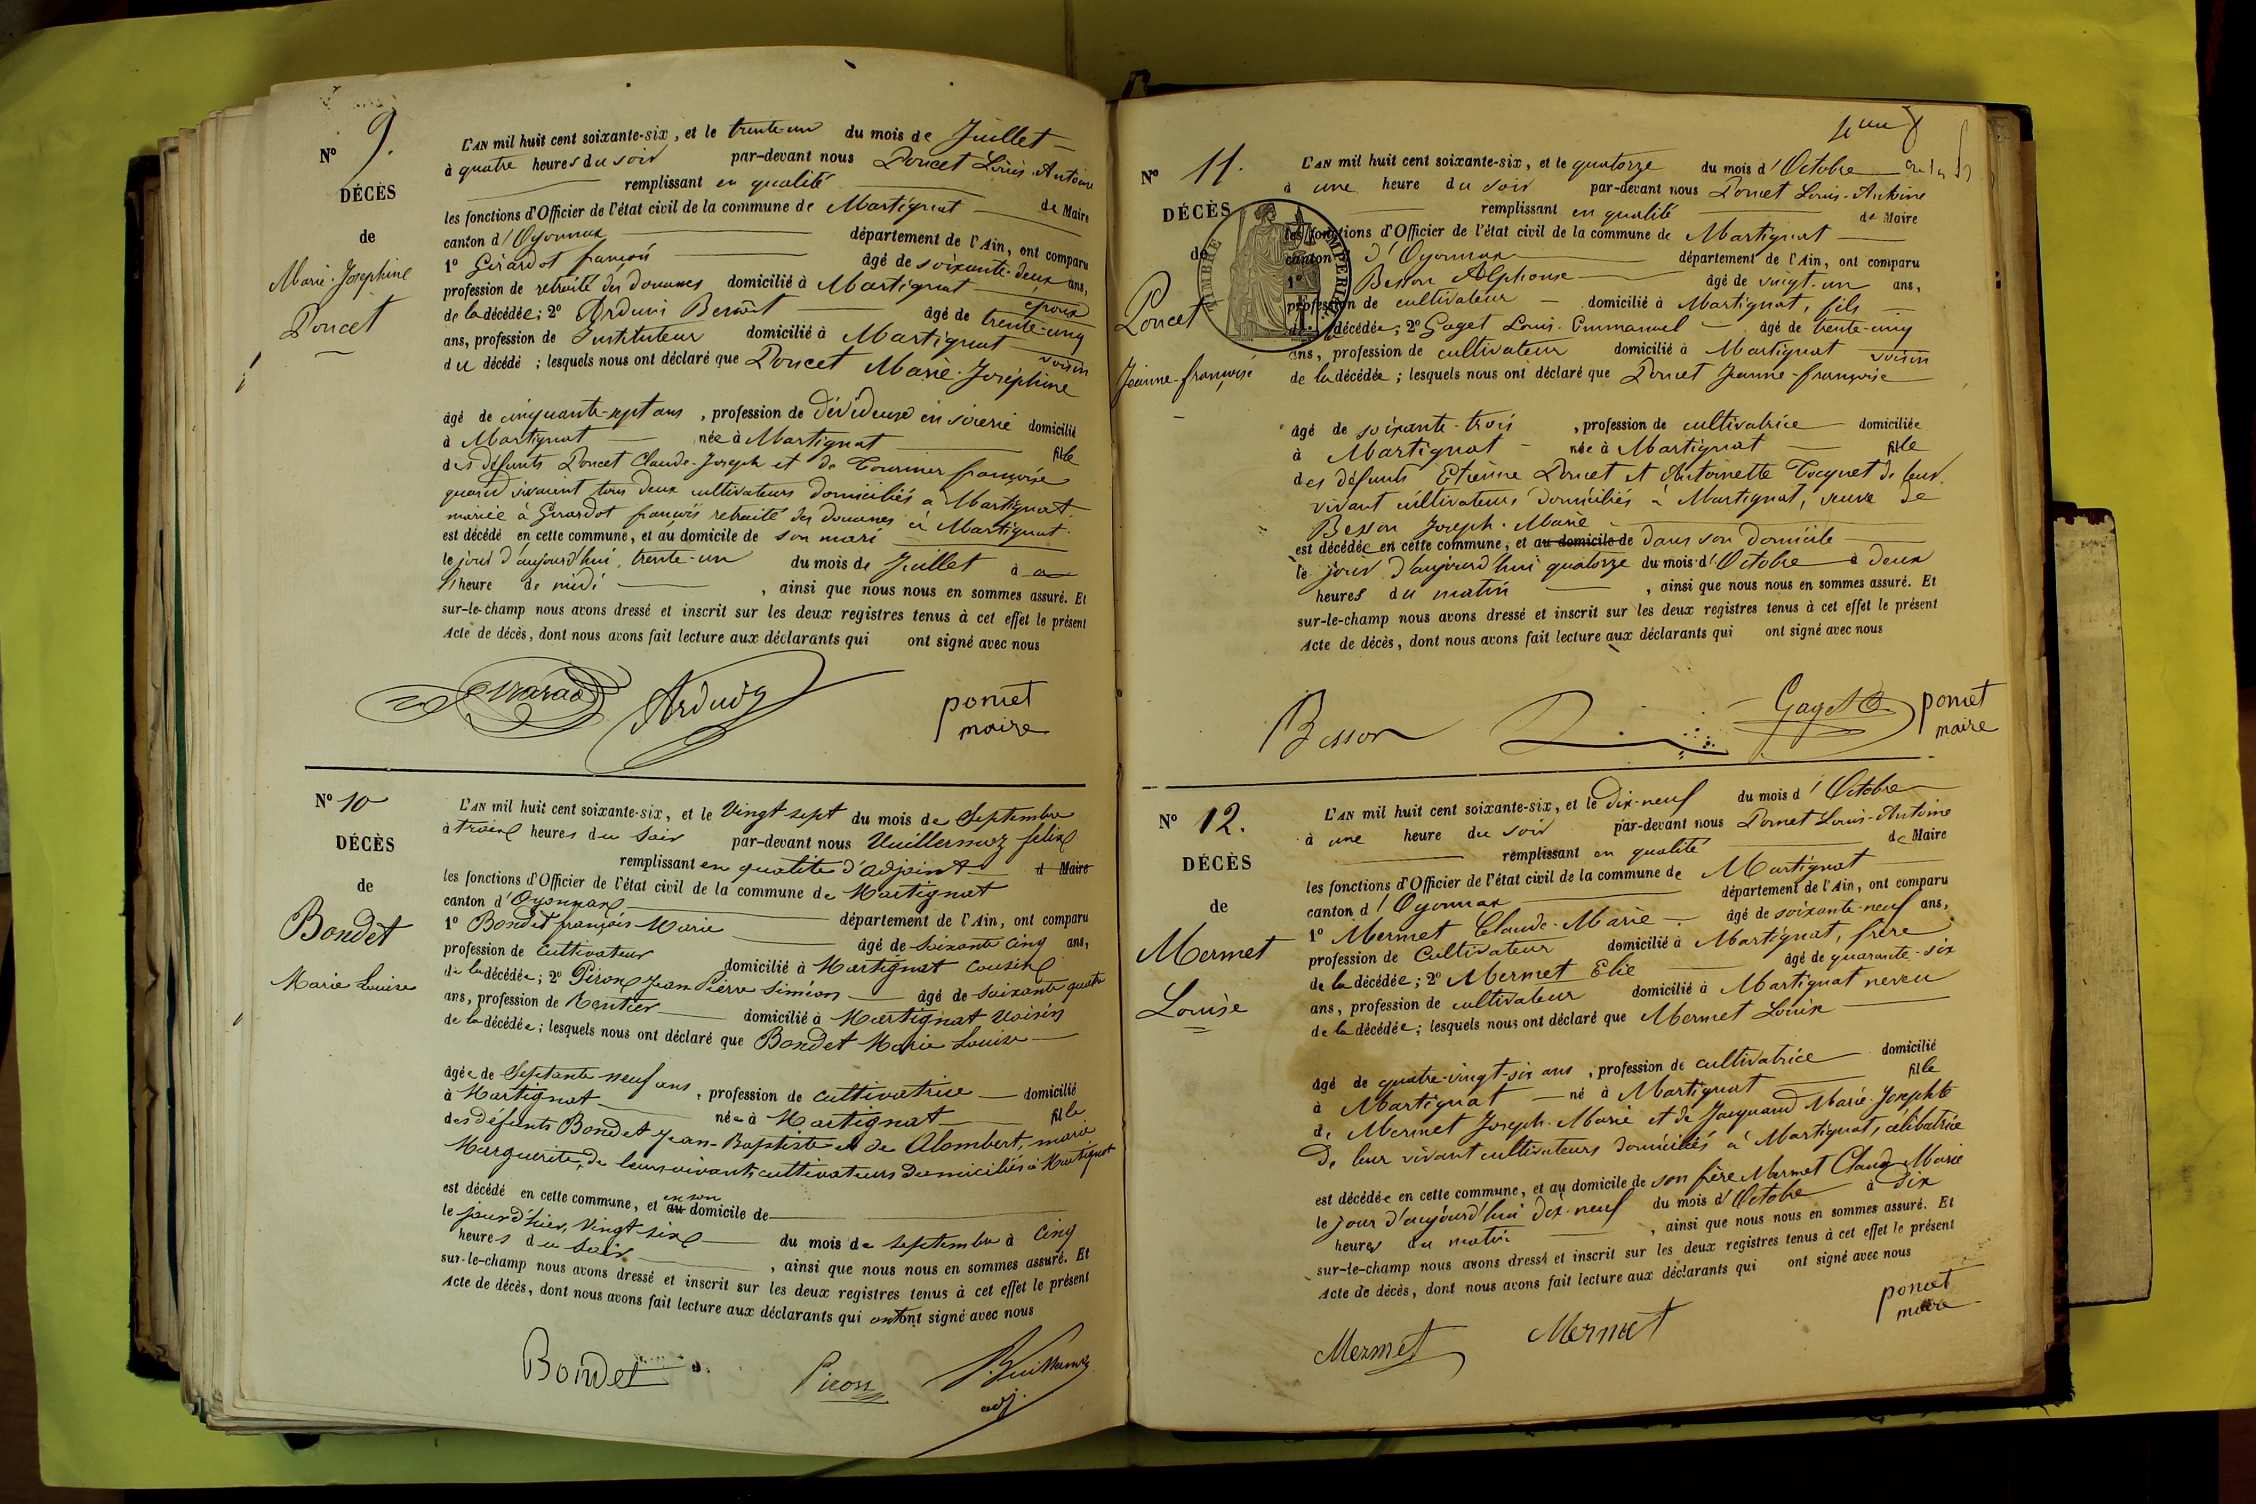 N° 9.
DÉCÈS
de
Marie-Josephine
Poncet
L'AN mil huit cent soixante-six, et le trente-un du mois de Juillet
à quatre heures du soir par-devant nous Poncet Louis-Antoine
remplissant en qualité de Maire
les fonctions d'Officier de l'état civil de la commune de Martignat
canton d'Oyonnax département de l'Ain, ont comparu
1° Girardot françois âgé de soixante-deux ans,
profession de retraité des douanes domicilié à Martignat époux
de la décédée; 2° Arduin Benoit âgé de trente-cinq
ans, profession de Instituteur domicilié à Martignat voisin
du décédé ; lesquels nous ont déclaré que Poncet Marie-Joséphine
âgé de cinquante-sept ans, profession de dévideuse en soierie domicilié
à Martignat née à Martignat fille
des défunts Poncet Claude-Joseph et de Tournier françoise
quand vivaient tous deux cultivateurs domiciliés à Martignat
mariée à Girardot françois retraité des douanes à Martignat.
est décédé en cette commune, et au domicile de son mari
le jour d'aujourd'hui, trente-un du mois de Juillet à
heure de midi, ainsi que nous nous en sommes assuré. Et
sur-le-champ nous avons dressé et inscrit sur les deux registres tenus à cet effet le présent
Acte de décès, dont nous avons fait lecture aux déclarants qui ont signé avec nous
Arduin
poncet
maire
N° 10
DÉCÈS
de
Bondet
Marie Louise
L'AN mil huit cent soixante-six, et le Vingt sept du mois de Septembre
à trois heures du Soir par-devant nous Vuillermoz félix
remplissant en qualité d'adjoint d Maire
les fonctions d'Officier de l'état civil de la commune de Martignat
canton d'Oyonnax département de l'Ain, ont comparu
1° Bondet françois Marie âgé de Soixante cinq ans,
profession de Cultivateur domicilié à Martignat Cousin
de la décédée; 2° Piron Jean Pierre Siméon âgé de Soixante quatre
ans, profession de Rentier domicilié à Martignat Voisin
de la décédée; lesquels nous ont déclaré que Bondet Marie Louise
âgée de Septante neuf ans, profession de cultivatrice domicilié
à Martignat née à Martignat fille
des défunts Bondet Jean-Baptiste et de Alombert, marie
Marguerite, de leur vivant cultivateurs domiciliés à Martignat
est décédé en cette commune, et en son au domicile de
le jour d'hier, Vingt six du mois de septembre à Cinq
heures du Soir, ainsi que nous nous en sommes assuré. Et
sur-le-champ nous avons dressé et inscrit sur les deux registres tenus à cet effet le présent
Acte de décès, dont nous avons fait lecture aux déclarants qui ont ont signé avec nous
Bondet
Piron
F. Vuillermoz
adj.
N° 11.
DÉCÈS
de
Poncet
Jeanne-françoise
TIMBRE IMPERIAL
L'AN mil huit cent soixante-six, et le quatorze du mois d'Octobre
à une heure du soir par-devant nous Poncet Louis-Antoine
remplissant en qualité de Maire
les fonctions d'Officier de l'état civil de la commune de Martignat
canton d'Oyonnax département de l'Ain, ont comparu
1° Besson Alphonse âgé de vingt-un ans,
profession de cultivateur domicilié à Martignat, fils
de la décédée; 2° Gaget Louis-Emmanuel âgé de trente-cinq
ans, profession de cultivateur domicilié à Martignat voisin
de la décédée ; lesquels nous ont déclaré que Poncet Jeanne-françoise
âgé de soixante-trois, profession de cultivatrice domiciliée
à Martignat née à Martignat fille
des défunts Etienne Poncet et Antoinette Cocquet de leur
vivant cultivateurs domiciliés à Martignat, veuve de
Besson Joseph-Marie
est décédée en cette commune, et au domicile de dans son domicile
le jour d'aujourd'hui quatorze du mois d'Octobre à deux
heures du matin, ainsi que nous nous en sommes assuré. Et
sur-le-champ nous avons dressé et inscrit sur les deux registres tenus à cet effet le présent
Acte de décès, dont nous avons fait lecture aux déclarants qui ont signé avec nous
Besson
Gaget
poncet
maire
N° 12.
DÉCÈS
de
Mermet
Louise
L'AN mil huit cent soixante-six, et le dix-neuf du mois d'Octobre
à une heure du soir par-devant nous Poncet Louis-Antoine
remplissant en qualité de Maire
les fonctions d'Officier de l'état civil de la commune de Martignat
canton d'Oyonnax département de l'Ain, ont comparu
1° Mermet Claude-Marie âgé de soixante-neuf ans,
profession de Cultivateur domicilié à Martignat, frère
de la décédée; 2° Mermet Elie âgé de quarante-six
ans, profession de cultivateur domicilié à Martignat neveu
de la décédée; lesquels nous ont déclaré que Mermet Louise
âgé de quatre-vingt-six ans, profession de cultivatrice domicilié
à Martignat né à Martignat fille
de Mermet Joseph-Marie et de Jacquand Marie-Josephte
de leur vivant cultivateurs domiciliés à Martignat, célibatrice
est décédée en cette commune, et au domicile de son frère Mermet Claude Marie
le jour d'aujourd'hui dix-neuf du mois d'Octobre à dix
heures du matin, ainsi que nous nous en sommes assuré. Et
sur-le-champ nous avons dressé et inscrit sur les deux registres tenus à cet effet le présent
Acte de décès, dont nous avons fait lecture aux déclarants qui ont signé avec nous
Mermet
Mermet
poncet
maire